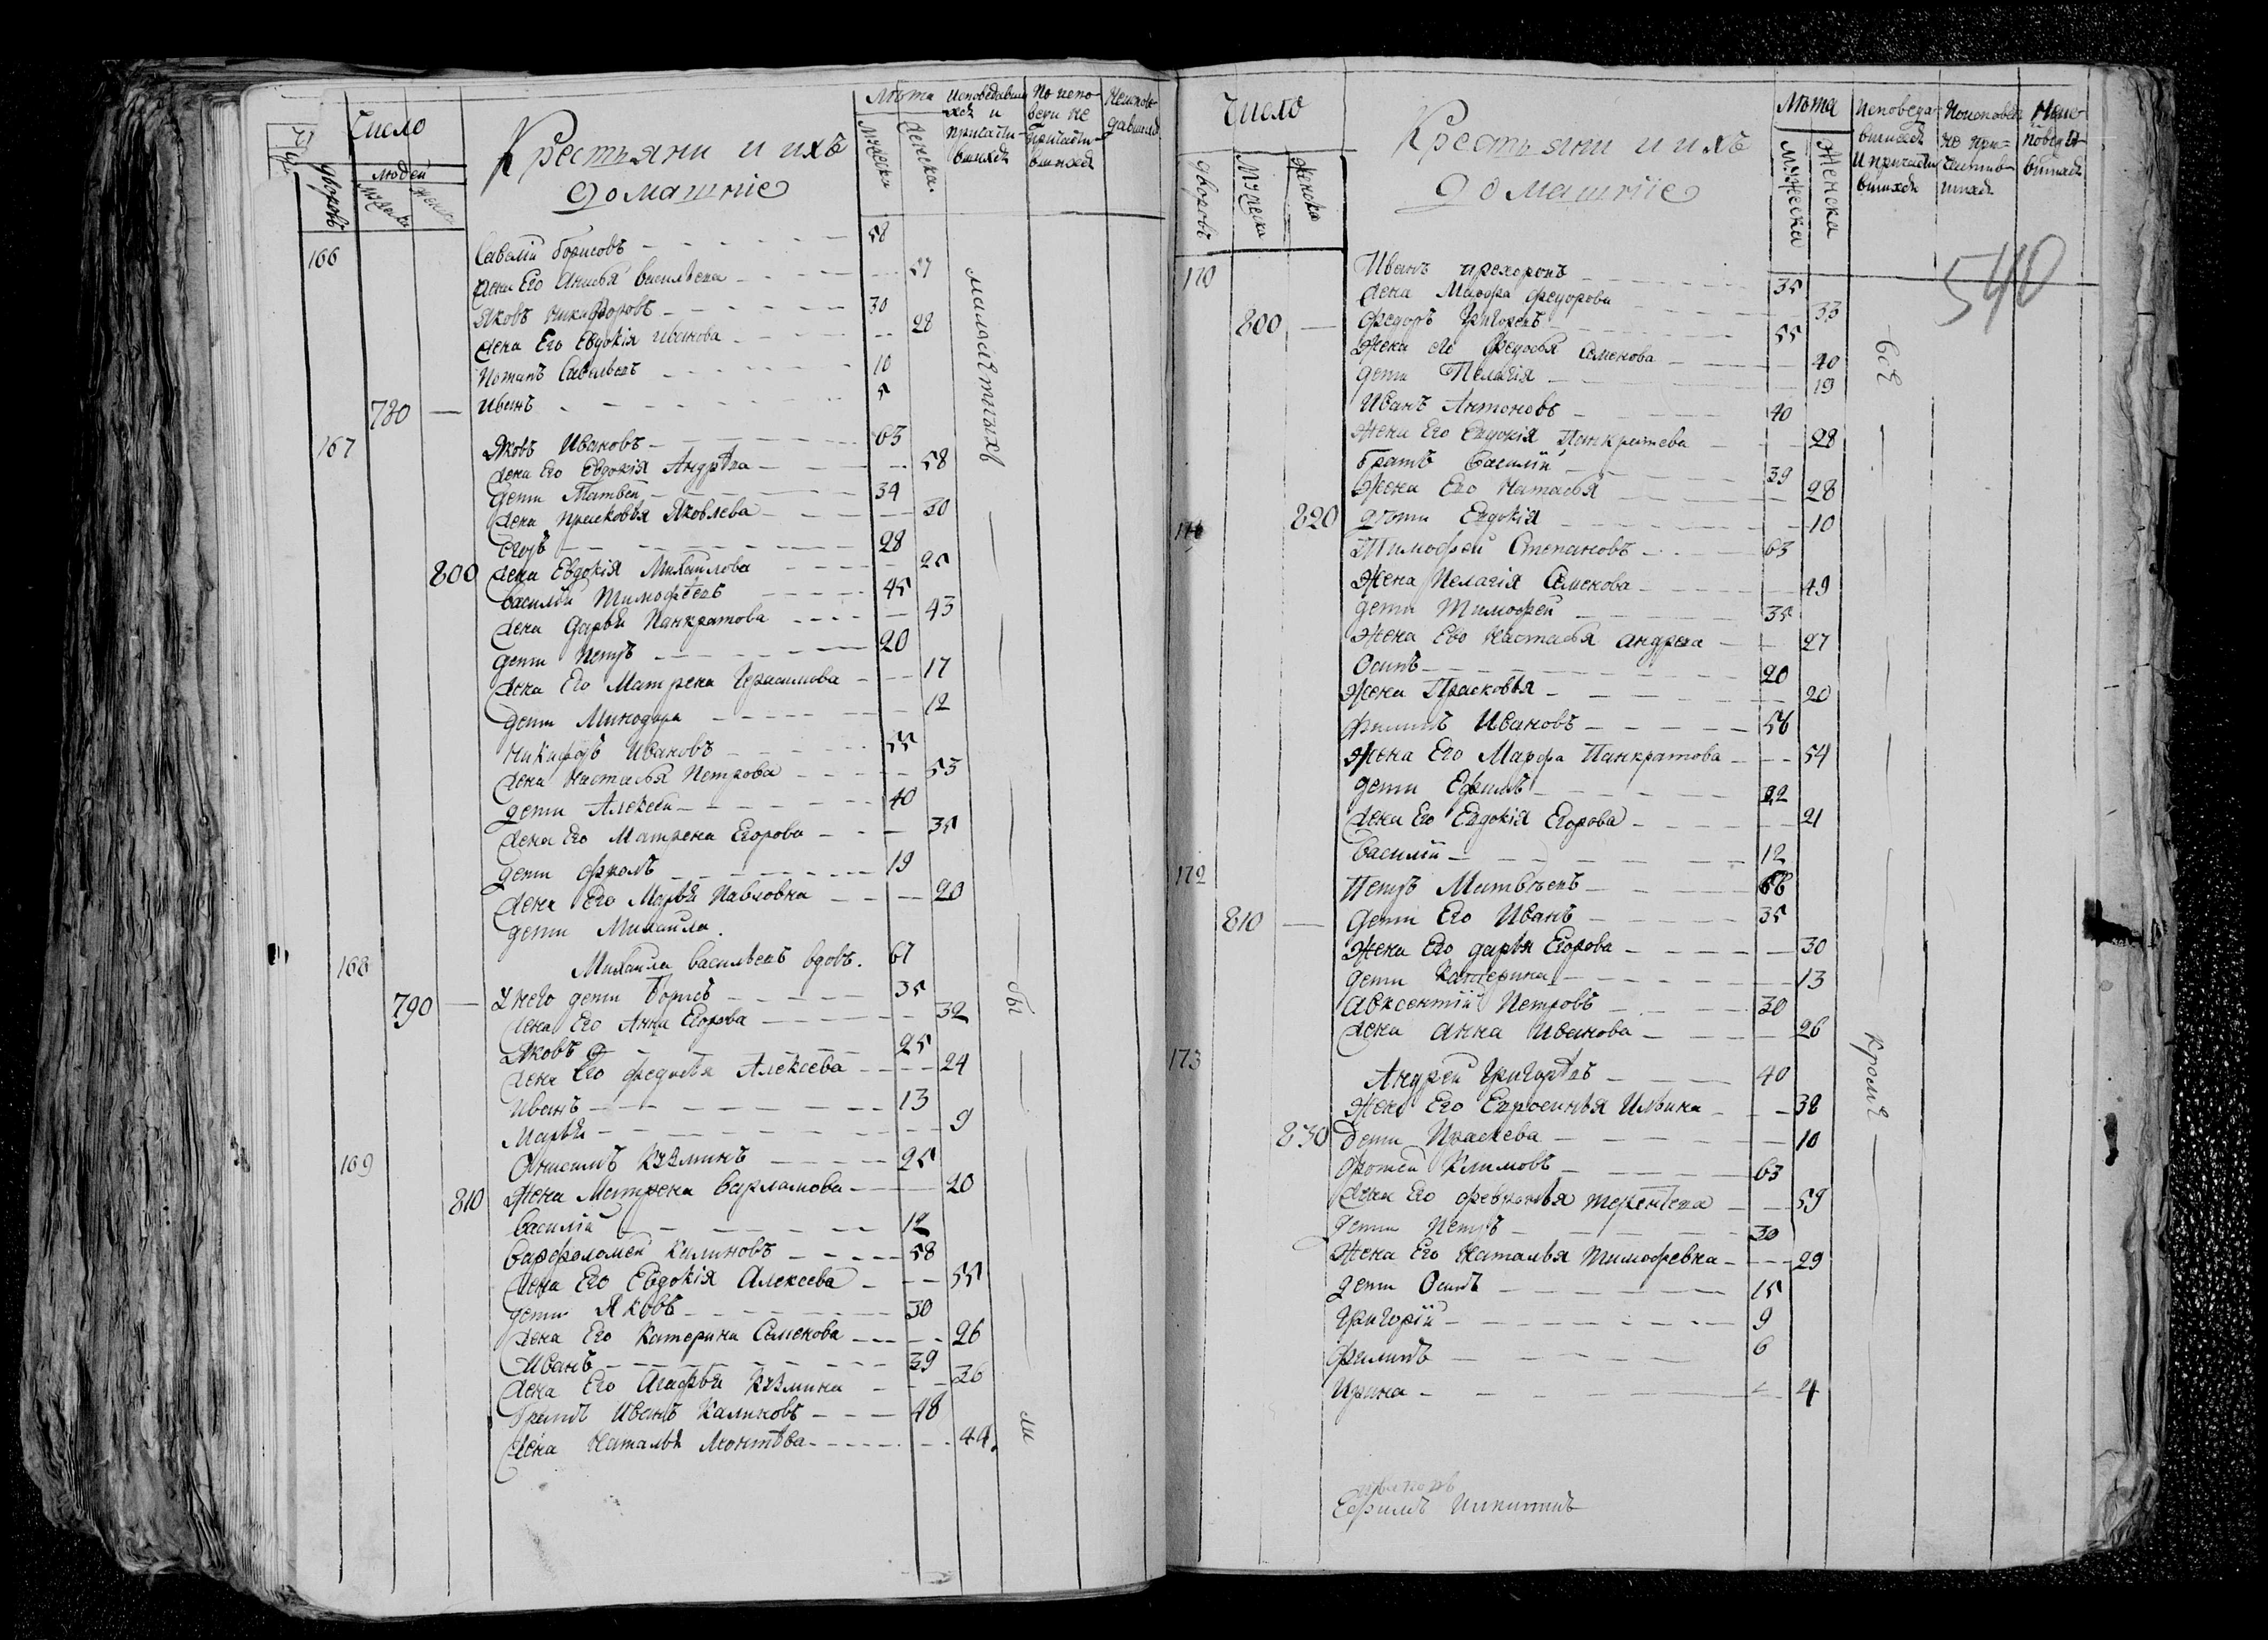 Число
дворовъ
людей
мужеска
женска
Крестьяни и ихъ
домашніе
Лѣта
мужеска
женска
исповедавши
хся и
причасти-
вшихся
По испо-
веди не
причасти-
вшихся
Неиспове-
давшихся
166 Савелій Борисовъ 58
Жена Его Анисья Васильева 57
Яковъ Никифоровъ 30
Жена Его Евдокія Иванова 28
Потапъ Савельевъ 10
780 Иванъ 5
167 Яковъ Ивановъ 63
Жена Его Евдокія Андрѣева 58
дети Матвей 34
Жена Прасковья Яковлева 30
Егоръ 28
800 Жена Евдокія Михаилова 25
Василій Тимофѣевъ 45
Жена Дарья Панкратова 43
дети Петръ 20
Жена Его Матрена Герасимова 17
дети Минодора 12
Никифоръ Ивановъ 55
Жена Настасья Петрова 53
дети Алексей 40
Жена Его Матрена Егорова 35
дети Фролъ 19
Жена Его Марья Павловна 20
дети Михаила
168 Михаила Васильевъ вдовъ. 67
790 У него дети Борисъ 35
Жена Его Анна Егорова 32
Яковъ 25
Жена Его Федосья Алексеева 24
Иванъ 13
Марья 9
169 Онисимъ Кузминъ 25
810 Жена Матрена Варламова 20
Василій 12
Варфоломей Калиновъ 58
Жена Его Евдокія Алексеева 55
дети Яковъ 30
Жена Его Катерина Семенова 26
Иванъ 39
Жена Его Агафья Кузмина 36
братъ Иванъ Калиновъ 48
Жена Наталья Леонтьева 44.
малолѣтныхъ
бы
ли
Число
дворовъ
мужеска
женска
Крестьяни и ихъ
домашніе
Лѣта
мужеска
Женска
исповеда-
вшихся
и причасти
вшихся
По исповеди
не при-
частив-
шихся
Неис-
поведа-
вшихся
540
170 Иванъ Прохоровъ 35
Жена Марфа Федорова 33
800 Федоръ Григорьевъ 55
Жена его Федосья Семенова 40
дети Пелагія 19
Иванъ Антоновъ 40
Жена Его Евдокія Панкратева 28
братъ Василій 39
Жена Его Наталья 28
820 дѣти Евдокія 10
171 Тимофей Степановъ 63
Жена Пелагія Семенова 49
дети Тимофей 35
Жена Ево Настасья Андреева 27
Осипъ 20
Жена Прасковья 20
Филипъ Ивановъ 56
Жена Его Марфа Панкратова 54
дети Ефимъ 22
Жена Его Евдокія Егорова 21
Василій 12
172 Петръ Матвѣевъ 66
810 Дети Его Иванъ 35
Жена Его Дарья Егорова 30
дети Катерина 13
Авксентій Петровъ 30
Жена Анна Иванова 26
173 Андрей Григорьевъ 40
Жена Его Евросинья Ильина 32
830 Дети Праскева 10
Фотей Климовъ 63
Жена Его Февронья Терентева 59
дети Петръ 30
Жена Его Наталья Тимофевна 29
дети Осипъ 15
Григорій 9
Филипъ 6
Ирина 4
Всѣ
кромѣ
Ефимъ Никитинъ